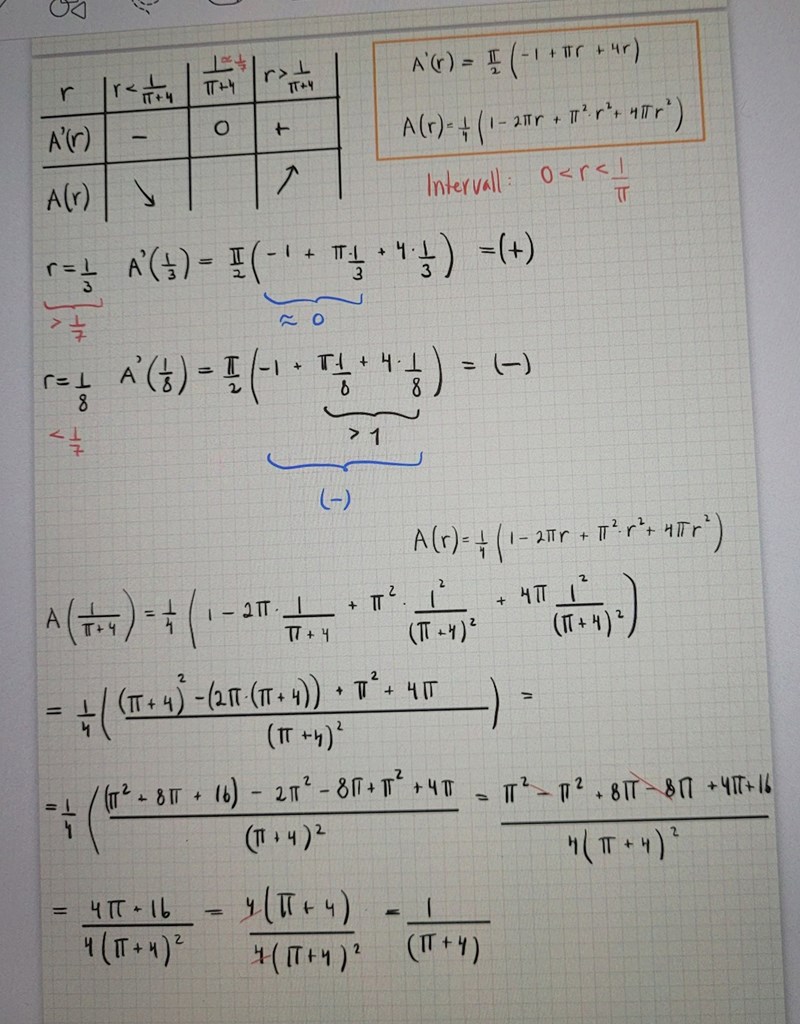 r | r < 1/(π+4) | 1/(π+4) ≈ 1/7 | r > 1/(π+4)
A'(r) | − | 0 | +
A(r) | ↘ | | ↗
A'(r) = π/2 (-1 + πr + 4r)
A(r) = 1/4 (1 - 2πr + π²·r² + 4πr²)
Intervall: 0 < r < 1/π
r = 1/3 A'(1/3) = π/2 (-1 + π·1/3 + 4·1/3) = (+)
> 1/7 ≈ 0
r = 1/8 A'(1/8) = π/2 (-1 + π·1/8 + 4·1/8) = (-)
< 1/7 > 1
(-)
A(r) = 1/4 (1 - 2πr + π²·r² + 4πr²)
A(1/(π+4)) = 1/4 (1 - 2π·1/(π+4) + π²·1²/(π+4)² + 4π 1²/(π+4)²)
= 1/4 (((π+4)² - (2π·(π+4)) + π² + 4π)/(π+4)²) =
= 1/4 (((π² + 8π + 16) - 2π² - 8π + π² + 4π)/(π+4)² = (π² - π² + 8π - 8π + 4π + 16)/(4(π+4)²)
= (4π + 16)/(4(π+4)²) = 4(π+4)/(4(π+4)²) = 1/(π+4)